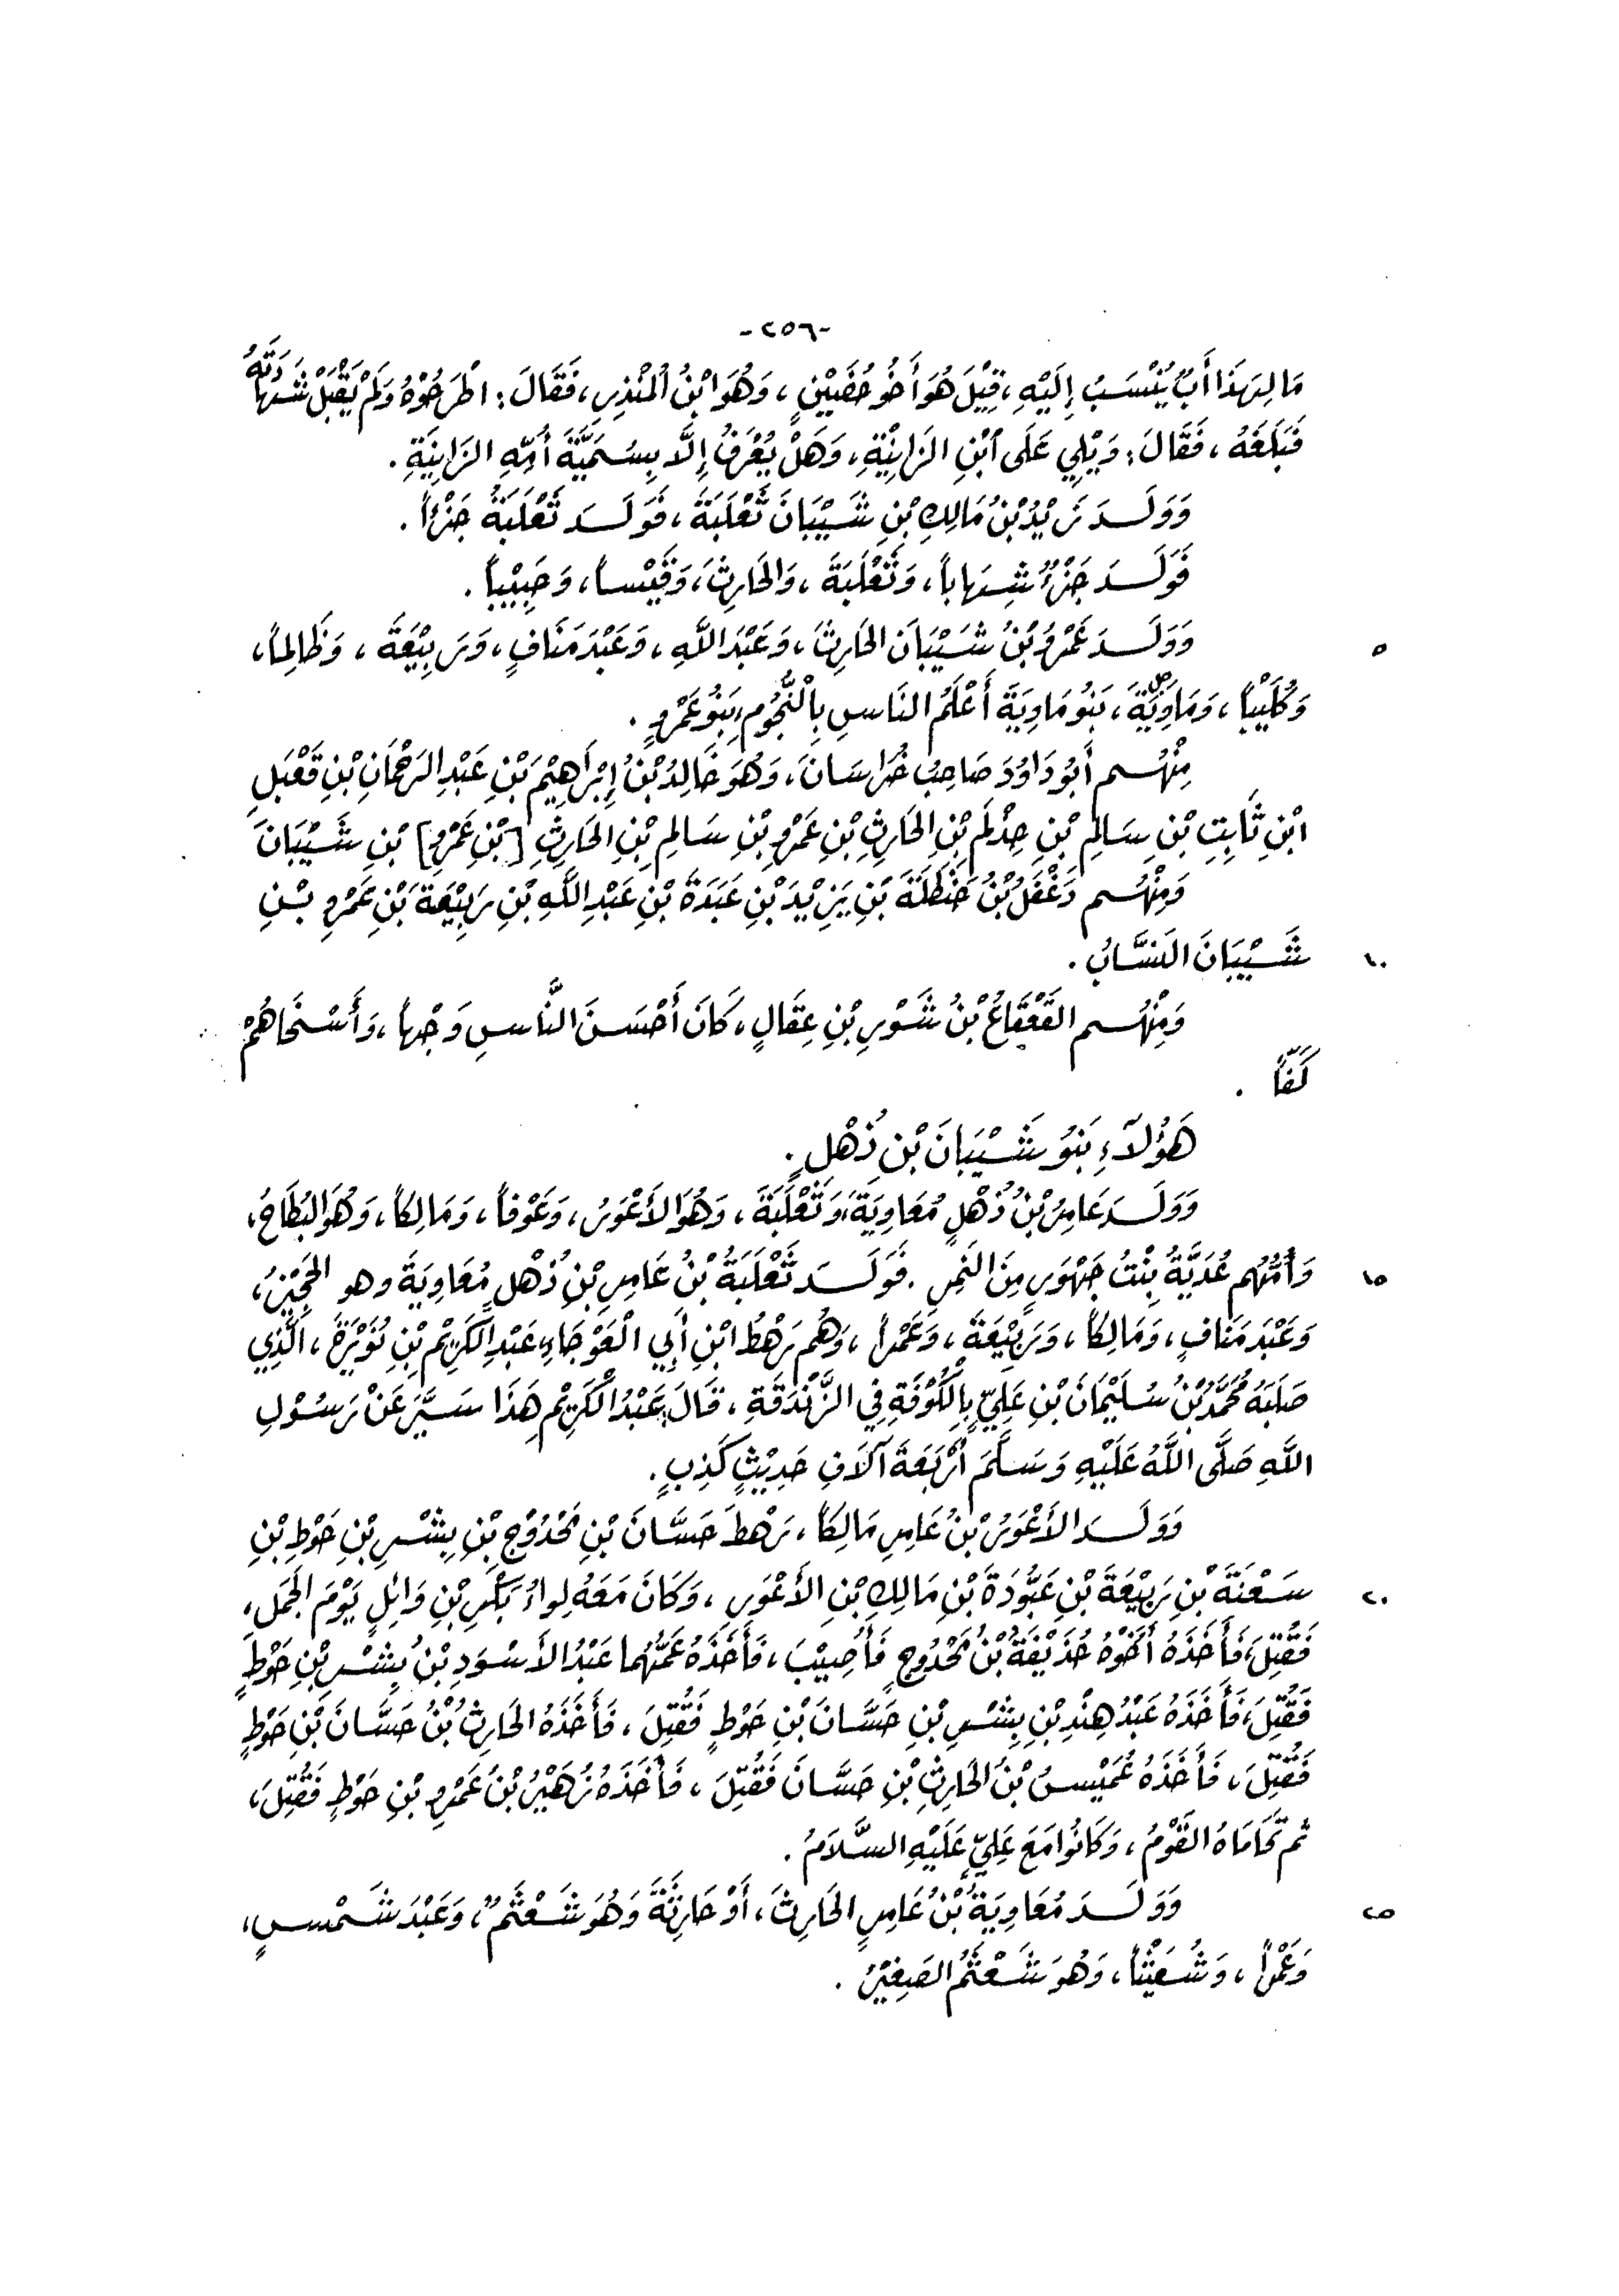 -٢٥٦-
مَا لِهَذَا أَبٌ يُنْسَبُ إِلَيْهِ، قِيْلَ هُوَ أَخُو حُضَيْنٍ، وَهُوَ ابْنُ الْمُنْذِرِ، فَقَالَ: اطْرَحُوْهُ وَلَمْ يَقْبَلْ شَهَادَتَهُ
فَبَلَغَهُ، فَقَالَ: وَيْلِي عَلَى ابْنِ الزَانِيَةِ، وَهَلْ يُعْرَفُ إِلَّا بِسُمَيَّةَ أُمِّهِ الزَانِيَةِ.
وَوَلَدَ زَيْدُ بْنُ مَالِكِ بْنِ شَيْبَانَ ثَعْلَبَةَ، فَوَلَدَ ثَعْلَبَةُ جَزْءاً.
فَوَلَدَ جَزْءٌ شِهَاباً، وَثَعْلَبَةَ، وَالحَارِثَ، وَقَيْساً، وَحَبِيْباً.
٥ وَوَلَدَ عَمْرُو بْنُ شَيْبَانَ الحَارِثَ، وَعَبْدَ اللَّهِ، وَعَبْدَ مَنَافٍ، وَرَبِيْعَةَ، وَظَالِماً،
وَكُلَيْباً، وَمَاوِيَّةَ، بَنُو مَاوِيَةَ أَعْلَمُ النَاسِ بِالْنُّجُومِ، بَنُو عَمْرٍو.
مِنْهُم أَبُو دَاوُدَ صَاحِبُ خُرَاسَانَ، وَهُوَ خَالِدُ بْنُ إِبْرَاهِيْمَ بْنِ عَبْدِ الرَحْمَانِ بْنِ قَعْبَلِ
ابْنِ ثَابِتِ بْنِ سَالِمِ بْنِ حِذْلَمِ بْنِ الحَارِثِ بْنِ عَمْرِو بْنِ سَالِمِ بْنِ الحَارِثِ [بْنِ عَمْرٍو] بْنِ شَيْبَانَ
وَمِنْهُم دَغْفَلُ بْنُ حَنْظَلَةَ بْنِ يَزِيْدَ بْنِ عَبَدَةَ بْنِ عَبْدِ اللَّهِ بْنِ رَبِيْعَةَ بْنِ عَمْرِو بْنِ
١٠ شَيْبَانَ النَسَّابُ.
وَمِنْهُم القَعْقَاعُ بْنُ شَوْرِ بْنِ عِقَالٍ، كَانَ أَحْسَنَ النَّاسِ وَجْهاً، وَأَسْخَاهُمْ
كَفّاً.
هَؤُلَآءِ بَنُو شَيْبَانَ بْنِ ذُهْلٍ.
وَوَلَدَ عَامِرُ بْنُ ذُهْلٍ مُعَاوِيَةَ، وَثَعْلَبَةَ، وَهُوَ الأَعْوَرُ، وَعَوْفاً، وَمَالِكاً، وَهُوَ البُطَاحُ،
١٥ وَأُمُّهُم عُدَيَّةُ بِنْتُ جَهْوَرٍ مِنَ النَمِرِ. فَوَلَدَ ثَعْلَبَةُ بْنُ عَامِرِ بْنِ ذُهْلٍ مُعَاوِيَةَ وهو الحَجِيْرُ،
وَعَبْدَ مَنَافٍ، وَمَالِكاً، وَرَبِيْعَةَ، وَعَمْراً، وَهُم رَهْطُ ابْنِ أَبِي الْعَوْجَاءِ، عَبْدِ الكَرِيْمِ بْنِ نُوَيْرَةَ، الَّذِي
صَلَبَهُ مُحَمَّدُ بْنُ سُلَيْمَانَ بْنِ عَلِيٍّ بِالْكُوْفَةِ فِي الزَّنْدَقَةِ، قَالَ عَبْدُ الْكَرِيْمِ هَذَا سَيَّرَ عَنْ رَسُوْلِ
اللَّهِ صَلَّى اللَّهُ عَلَيْهِ وَسَلَّمَ أَرْبَعَةَ آلَافِ حَدِيْثٍ كَذِبٍ.
وَوَلَدَ الأَعْوَرُ بْنُ عَامِرٍ مَالِكاً، رَهْطَ حَسَّانَ بْنِ مَحْدُوْجِ بْنِ بِشْرِ بْنِ حَوْطِ بْنِ
٢٠ سَعْنَةَ بْنِ رَبِيْعَةَ بْنِ عَبُّوْدَةَ بْنِ مَالِكِ بْنِ الأَعْوَرِ، وَكَانَ مَعَهُ لِوَاءُ بَكْرِ بْنِ وَائِلٍ يَوْمَ الجَمَلِ،
فَقُتِلَ، فَأَخَذَهُ أَخُوْهُ حُذَيْفَةُ بْنُ مَحْدُوجٍ فَأُصِيْبَ، فَأَخَذَهُ عَمُّهُما عَبْدُ الأَسْوَدِ بْنُ بِشْرِ بْنِ حَوْطٍ
فَقُتِلَ، فَأَخَذَهُ عَبْدُ هِنْدِ بْنِ بِشْرِ بْنِ حَسَّانَ بْنِ حَوْطٍ فَقُتِلَ، فَأَخَذَهُ الحَارِثُ بْنُ حَسَّانَ بْنِ حَوْطٍ
فَقُتِلَ، فَأَخَذَهُ عُمَيْسُ بْنُ الحَارِثِ بْنِ حَسَّانَ فَقُتِلَ، فَأَخَذَهُ زُهَيْرُ بْنُ عَمْرِو بْنِ حَوْطٍ فَقُتِلَ،
ثم تَحَامَاهُ القَوْمُ، وَكَانُوا مَعَ عَلِيٍّ عَلَيْهِ السَّلَامُ.
٢٥ وَوَلَدَ مُعَاوِيَةُ بْنُ عَامِرٍ الحَارِثَ، أَوْ حَارِثَةَ وَهُوَ شَعْثَمٌ، وَعَبْدَ شَمْسٍ،
وَعَمْراً، وَشُعَيْثاً، وَهُوَ شَعْثَمُ الصَغِيْرُ.